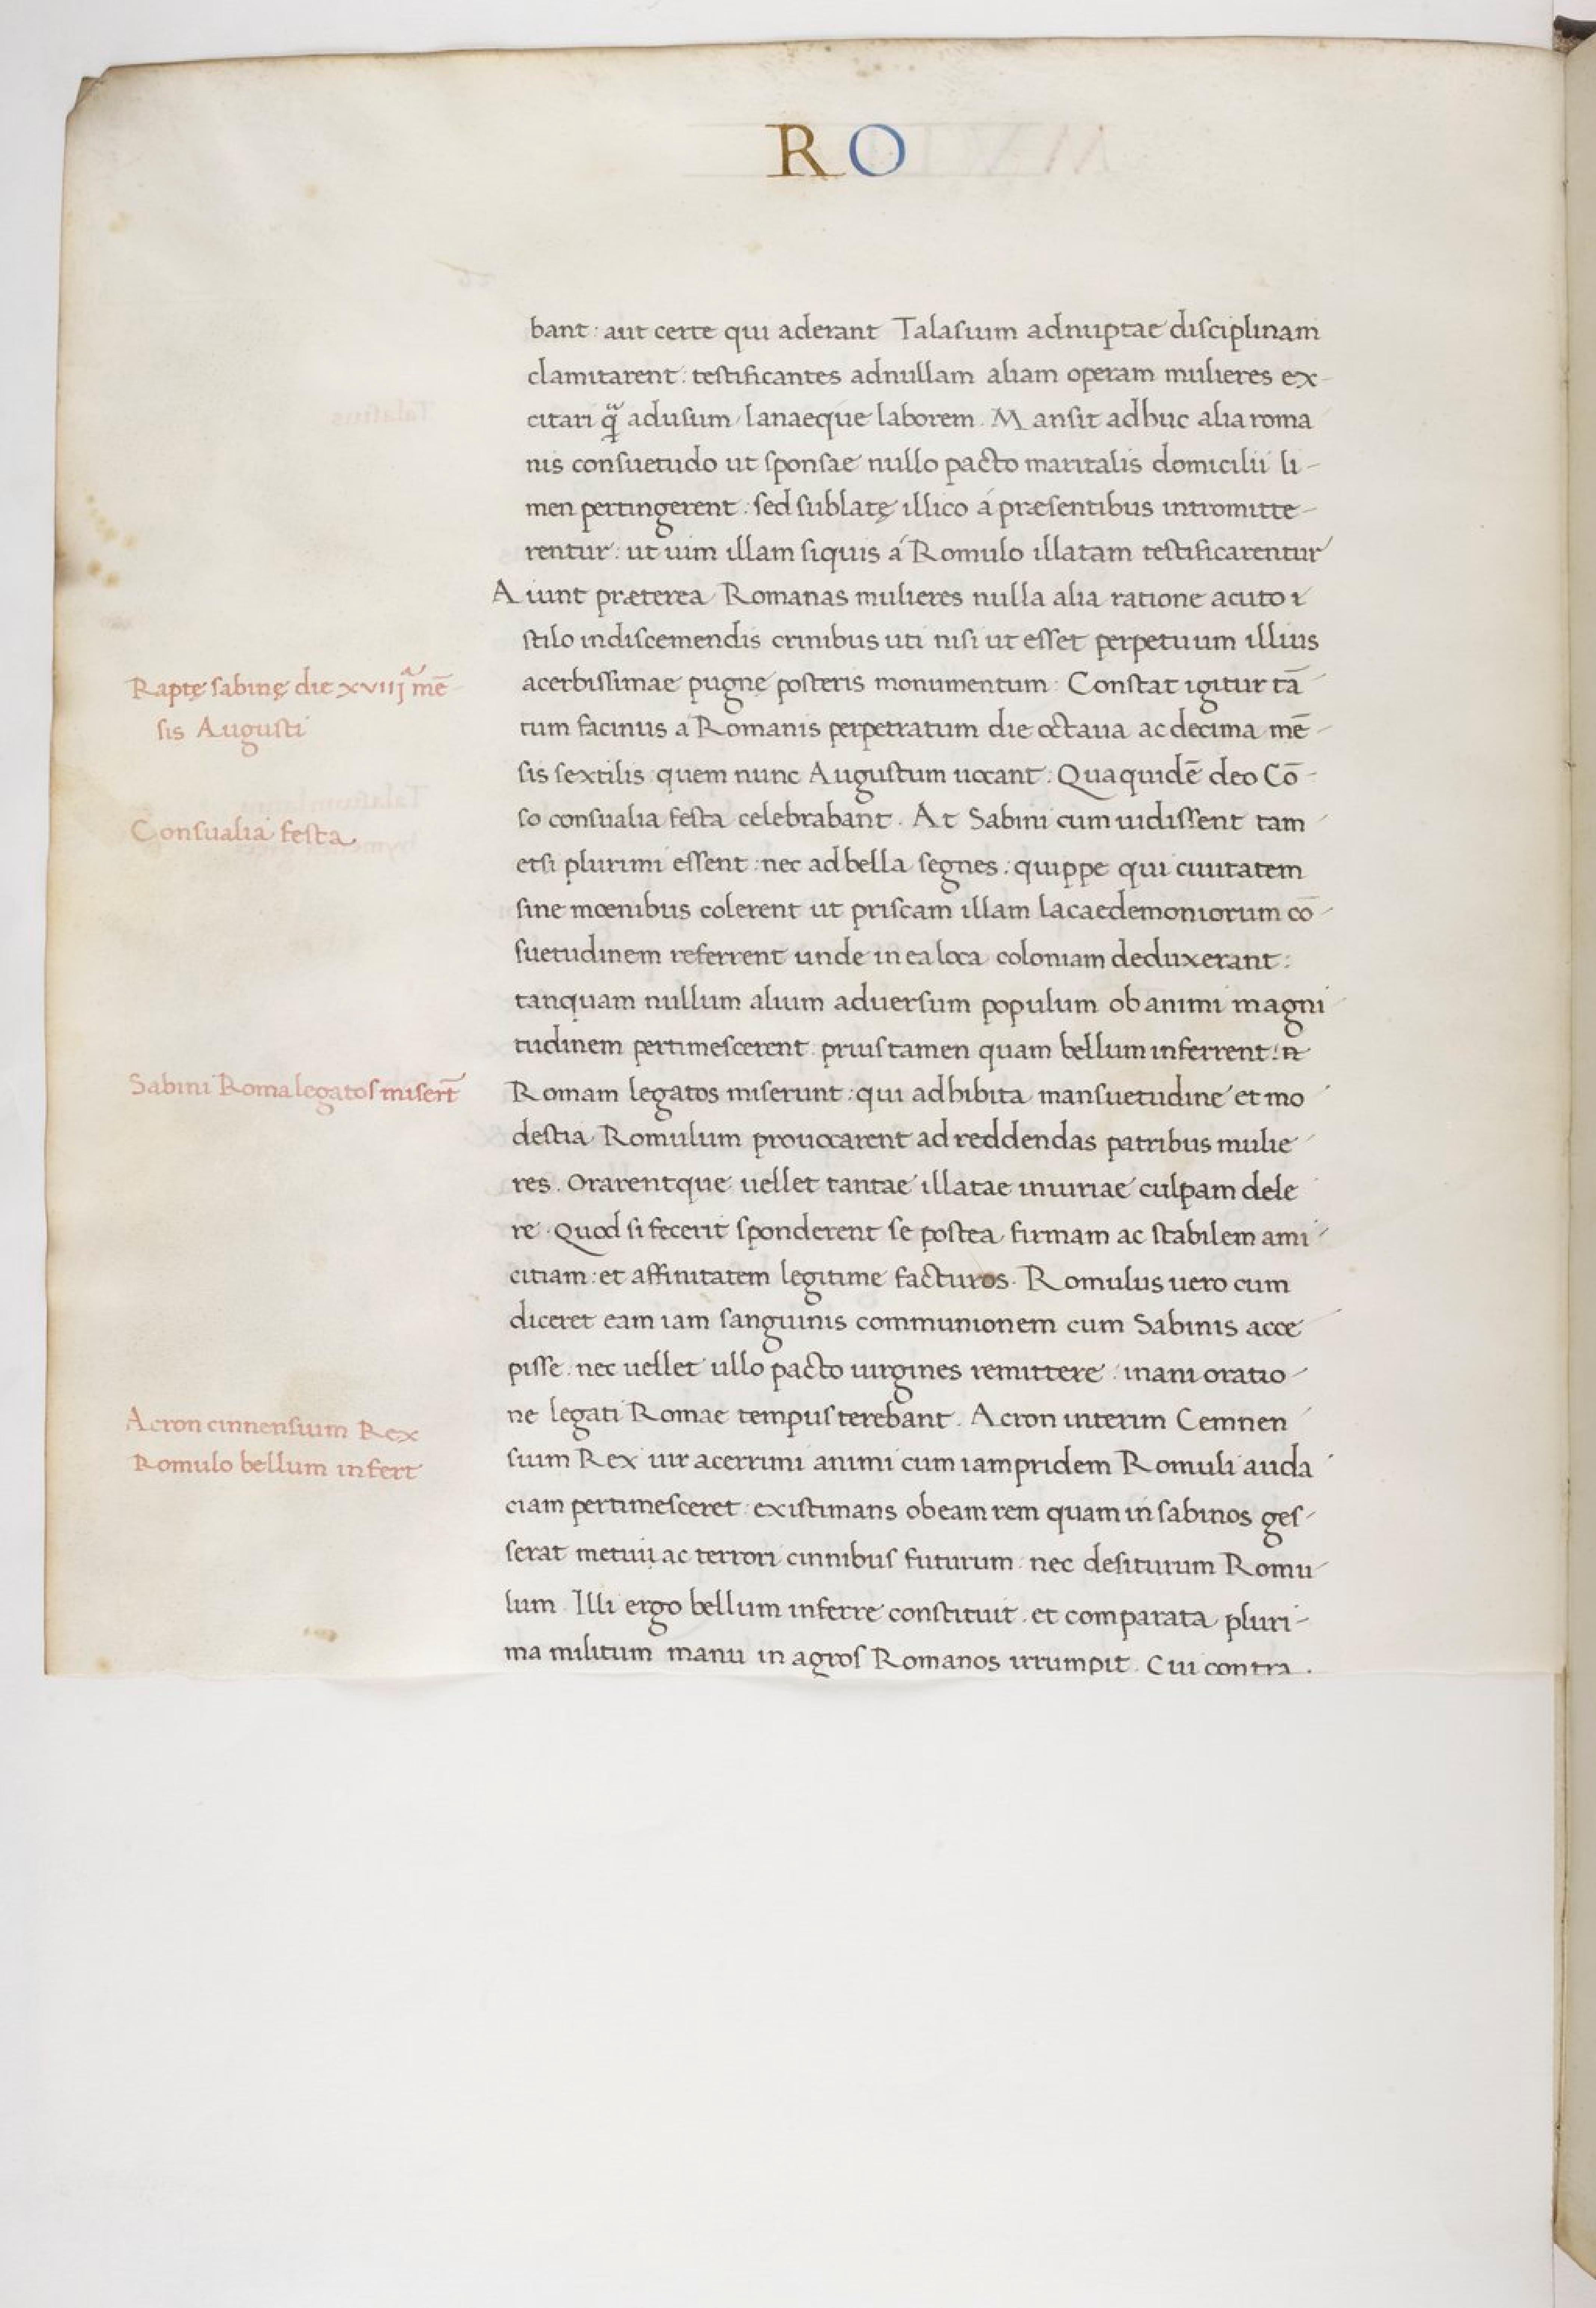 RO
bant: aut certe qui aderant Talasium adnuptae disciplinam
clamitarent: testificantes adnullam aliam operam mulieres ex-
citari qᷓ adusum lanaeque laborem. Mansit adhuc alia roma
nis consuetudo ut sponsae nullo pacto maritalis domicilii li-
men pertingerent: sed sublatę illico á præsentibus intromitte-
rentur: ut uim illam siquis á Romulo illatam testificarentur
Aiunt præterea Romanas mulieres nulla alia ratione acuto
stilo indiscernendis crinibus uti nisi ut esset perpetuum illius
Raptę sabinę die xviijᵃ mē
sis Augusti
acerbissimae pugnę posteris monumentum. Constat igitur tā
tum facinus á Romanis perpetratum die octaua ac decima mē-
sis sextilis quem nunc Augustum uocant: Qua quidē deo Cō-
Consualia festa
so consualia festa celebrabant. At Sabini cum uidissent tam
etsi plurimi essent: nec ad bella segnes: quippe qui ciuitatem
sine mœnibus colerent ut priscam illam lacaedemoniorum cō-
suetudinem referrent unde in ea loca coloniam deduxerant:
tanquam nullum alium aduersum populum ob animi magni
tudinem pertimescerent: prius tamen quam bellum inferrent:
Sabini Roma legatos misert̄
Romam legatos miserunt: qui adhibita mansuetudine et mo
destia Romulum prouocarent ad reddendas patribus mulie
res. Orarentque uellet tantae illatae iniuriae culpam dele
re. Quod si fecerit sponderent se postea firmam ac stabilem ami
citiam: et affinitatem legitime facturos. Romulus uero cum
diceret eam iam sanguinis communionem cum Sabinis acce
pisse. nec uellet ullo pacto uirgines remittere: inani oratio-
Acron cinnensium Rex
Romulo bellum infert
ne legati Romae tempus terebant. Acron interim Cemnen
sium Rex uir acerrimi animi cum iampridem Romuli auda
ciam pertimesceret: existimans ob eam rem quam in sabinos ges-
serat metui ac terrori cinnibus futurum: nec desiturum Romu
lum. Illi ergo bellum inferre constituit. et comparata pluri-
ma militum manu in agros Romanos irrumpit. Cui contra.